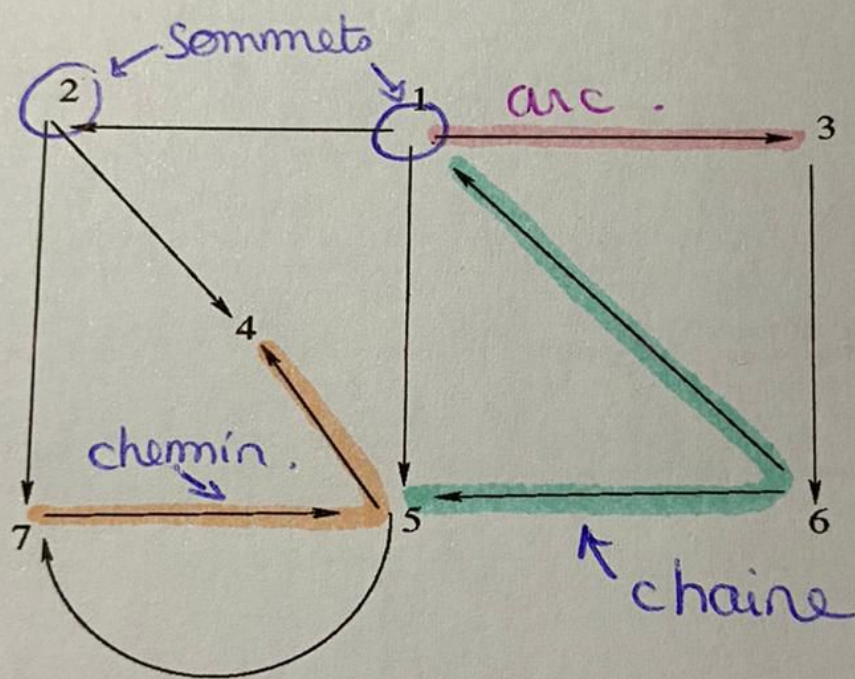 sommets
2
1
arc .
3
4
chemin .
7
5
6
chaine